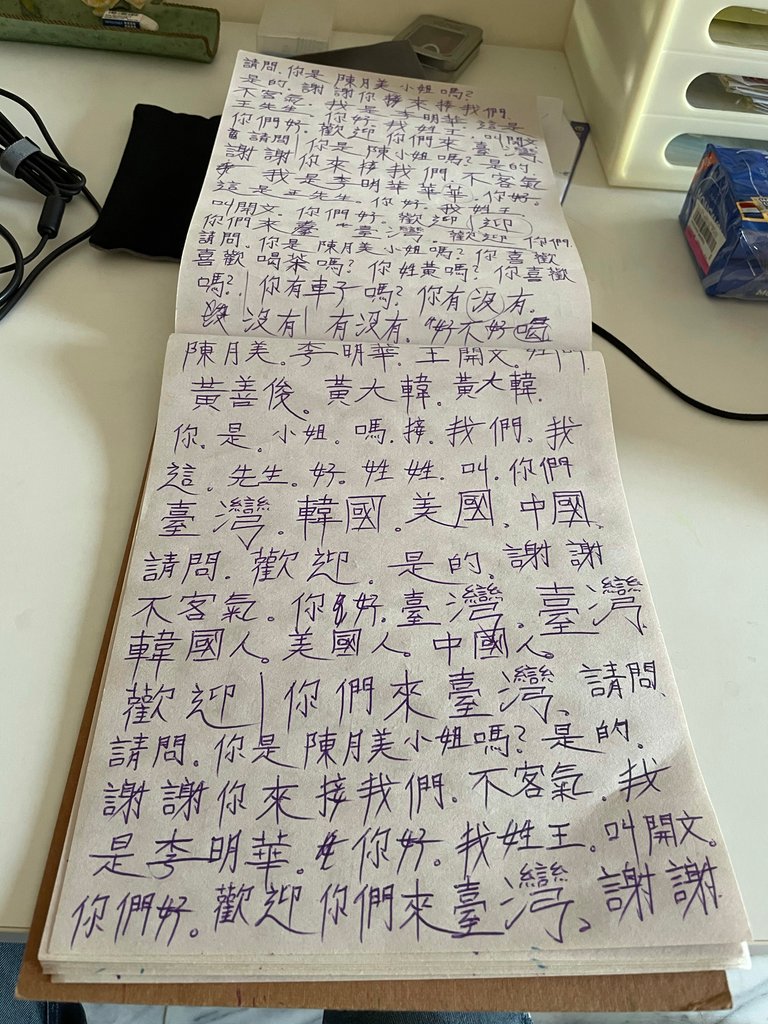 請問.你是陳月美小姐嗎?
是的.謝謝你接來接我們.
不客氣.我是李明華.這是
王先生.你好.我姓王.叫開文.
你們好.歡迎你們來臺灣.
請問|你是陳小姐嗎?是的
謝謝你來接我們.不客氣
我是李明華華華.你好.
這是王先生.你好.我姓王.
叫開文.你們好.歡迎(迎)
你們來臺.臺灣.歡迎你們.
請問.你是陳月美小姐嗎?你喜歡
喜歡喝茶嗎?你姓黃嗎?你喜歡
嗎?|你有車子嗎?你有沒有.
沒有|有沒有.好不好喝
陳月美.李明華.王開文.
黃善俊.黃大韓.黃大韓.
你.是.小姐.嗎.接.我們.我
這.先生.好.姓姓.叫.你們
臺灣.韓國.美國.中國.
請問.歡迎.是的.謝謝
不客氣.你好.臺灣.臺灣.
韓國人。美國人。中國人。
歡迎|你們來臺灣.請問.
請問.你是陳月美小姐嗎?是的.
謝謝你來接我們.不客氣.我
是李明華.你好.我姓王.叫開文。
你們好。歡迎你們來臺灣.謝謝.